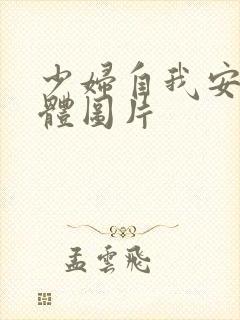 少婦自我安
體圖片
孟雲飛